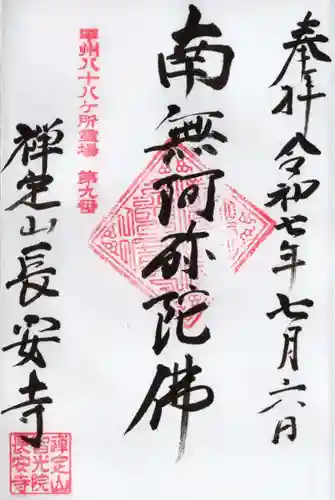 奉拝 令和七年七月六日
甲州八十八ケ所霊場 第九番
南無阿弥陀佛
禅定山長安寺
禅定山
智光院
長安寺